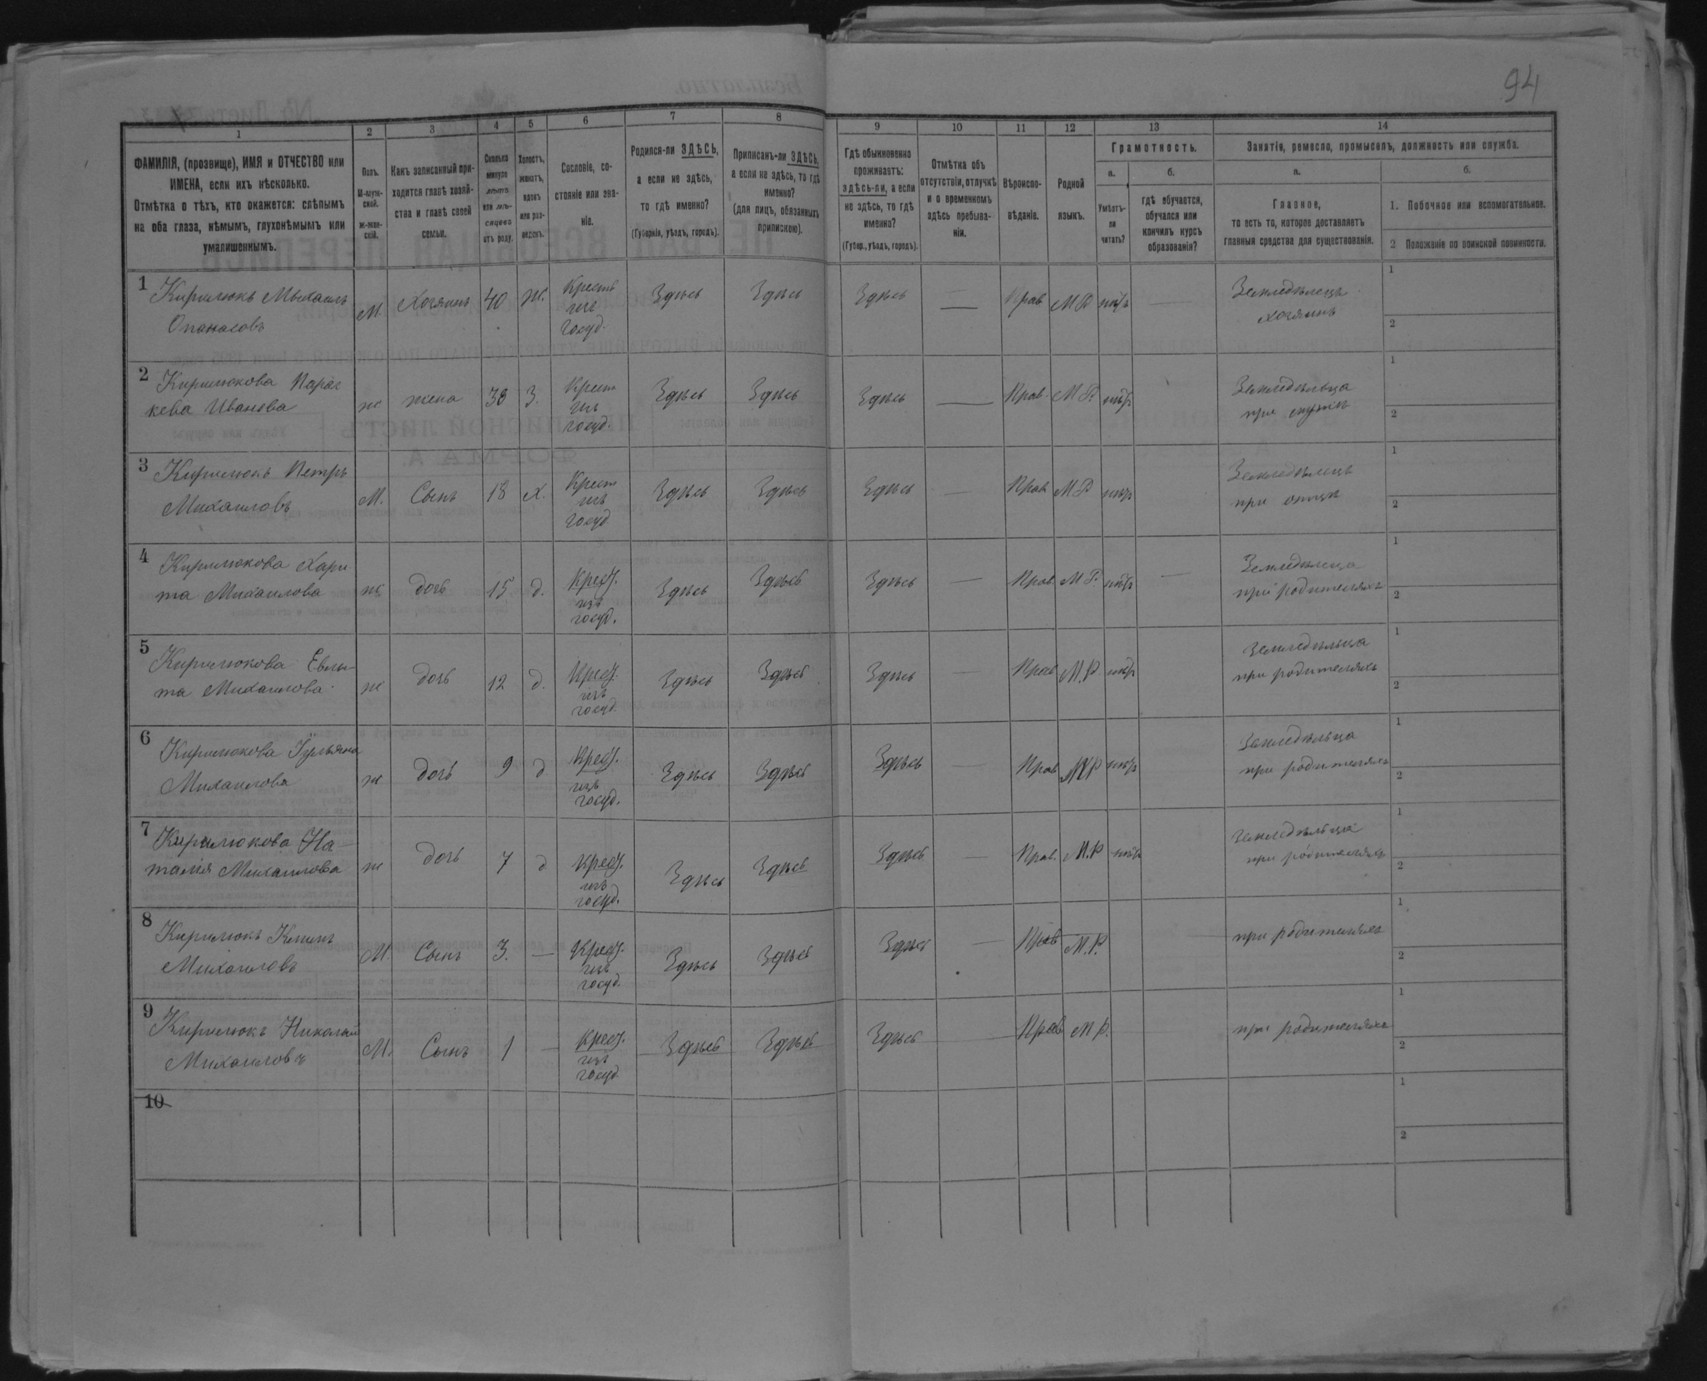 94
1 2 3 4 5 6 7 8 9 10 11 12 13 14
ФАМИЛІЯ, (прозвище), ИМЯ и ОТЧЕСТВО или
ИМЕНА, если ихъ нѣсколько.
Отмѣтка о тѣхъ, кто окажется: слѣпымъ
на оба глаза, нѣмымъ, глухонѣмымъ или
умалишеннымъ.
Полъ.
М-мужской.
Ж-женскій.
Какъ записанный приходится главѣ хозяйства и главѣ своей семьи.
Сколько минуло лѣтъ или мѣсяцевъ отъ роду.
Холостъ, женатъ, вдовъ или разведенъ.
Сословіе, состояніе или званіе.
Родился-ли ЗДѢСЬ,
а если не здѣсь,
то гдѣ именно?
(Губернія, уѣздъ, городъ).
Приписанъ-ли ЗДѢСЬ,
а если не здѣсь, то гдѣ
именно?
(для лицъ, обязанныхъ
припискою).
Гдѣ обыкновенно
проживаетъ:
здѣсь-ли, а если
не здѣсь, то гдѣ
именно?
(Губер., уѣздъ, городъ).
Отмѣтка объ
отсутствіи, отлучкѣ
и о временномъ
здѣсь пребываніи.
Вѣроисповѣданіе.
Родной
языкъ.
Грамотность.
а.
Умѣетъ-ли
читать?
б.
гдѣ обучается,
обучался или
кончилъ курсъ
образованія?
Занятіе, ремесло, промыселъ, должность или служба.
а.
Главное,
то есть то, которое доставляетъ
главныя средства для существованія.
б.
1. Побочное или вспомогательное.
2 Положеніе по воинской повинности.
1 Кирилюкъ Михаилъ Опанасовъ М. Хозяинъ 40 Ж. Крестъ изъ госуд. Здѣсь Здѣсь Здѣсь — Прав М Р нѣтъ — Земледѣлецъ хозяинъ 1 2
2 Кирилюкова Параскева Иванова ж жена 38 З. Крест изъ госуд. Здѣсь Здѣсь Здѣсь — Прав М Р нѣтъ Земледѣльца при мужѣ 1 2
3 Кирилюкъ Петръ Михаиловъ М. Сынъ 18 х. Крест изъ госуд Здѣсь Здѣсь Здѣсь — Прав М Р нѣтъ Земледѣлецъ при отцѣ 1 2
4 Кирилюкова Харита Михаилова ж дочь 15 д. Крест. изъ госуд. Здѣсь Здѣсь Здѣсь — Прав М Р. нѣтъ — Земледѣлца при родителяхъ 1 2
5 Кирилюкова Михаилова ж дочь 12 д. Крест. изъ госуд Здѣсь Здѣсь Здѣсь — Прав М.Р нѣтъ Земледѣльца при родителяхъ 1 2
6 Кирилюкова Іульяна Михаилова ж дочь 9 д Крест. изъ госуд. Здѣсь Здѣсь Здѣсь — Прав М Р нѣтъ Земледѣльца при родителяхъ 1 2
7 Кирилюкова Наталія Михаилова ж дочь 7 д Крест. изъ госуд. Здѣсь Здѣсь Здѣсь — Прав. М.Р нѣтъ Земледѣльца при родителяхъ 1 2
8 Кирилюкъ Климъ Михаиловъ М Сынъ 3. — Крест. изъ госуд. Здѣсь Здѣсь Здѣсь — Прав М.Р. при родителяхъ 1 2
9 Кирилюкъ Николай Михаиловъ М. Сынъ 1 — Крест. изъ госуд Здѣсь Здѣсь Здѣсь — Прав М Р. при родителяхъ 1 2
10 1 2